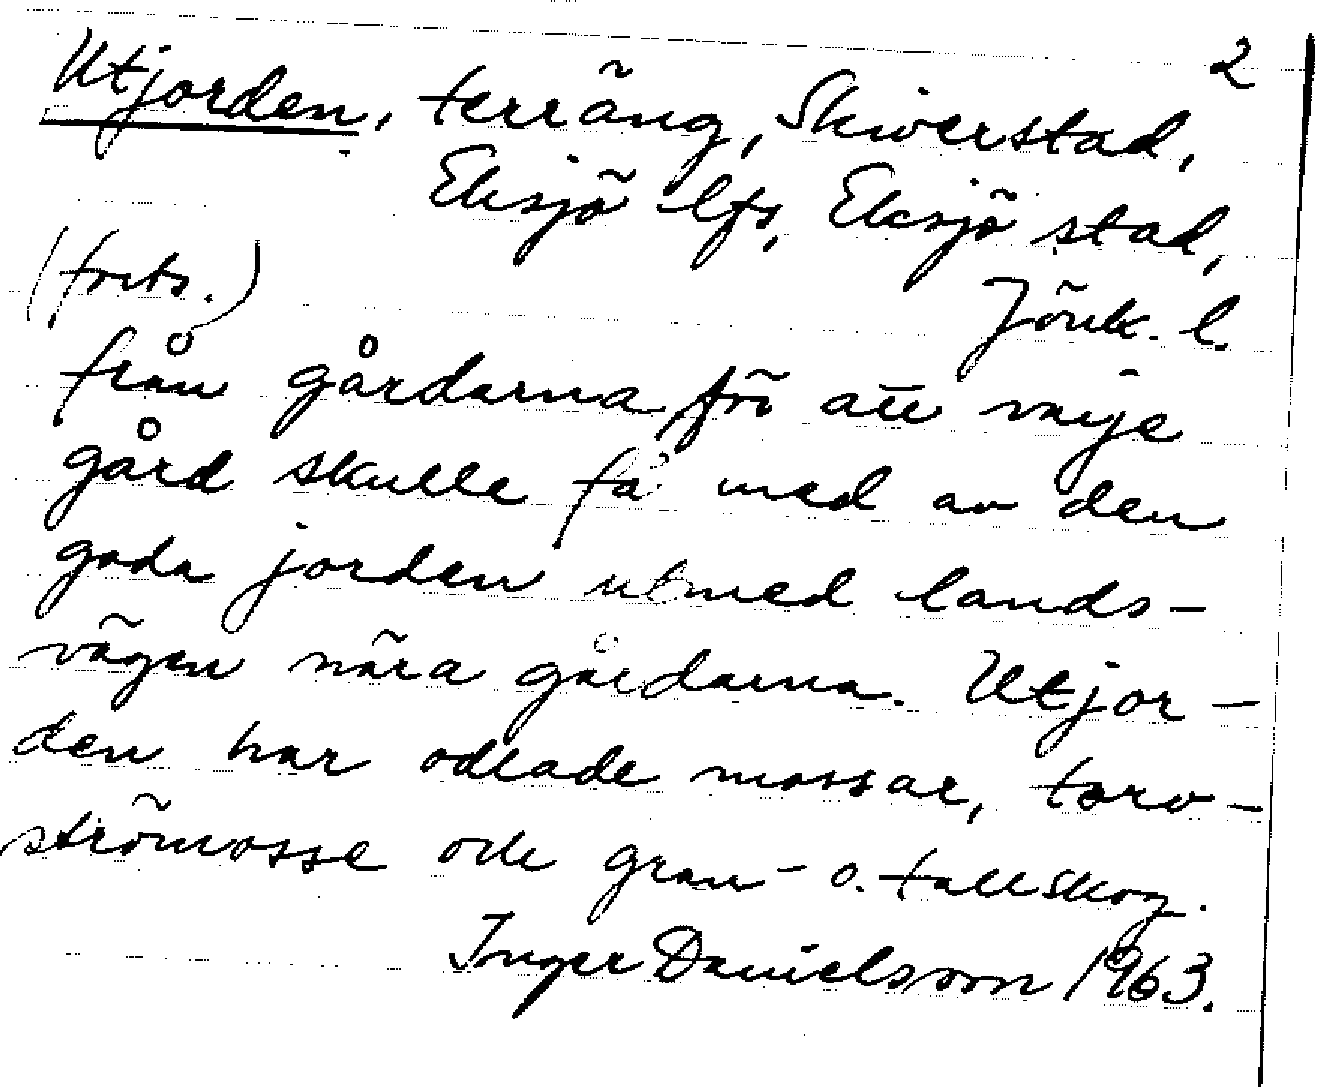 2
Utjorden, terräng, Skiverstad,
Eksjö lfs, Eksjö stad,
(forts.) Jönk. l.
från gårdarna för att varje
gård skulle få med av den
goda jorden utmed lands-
vägen nära gårdarna. Utjor-
den har odlade mossar, torv-
strömosse och gran- o. tallskog.
Inger Danielsson 1963.